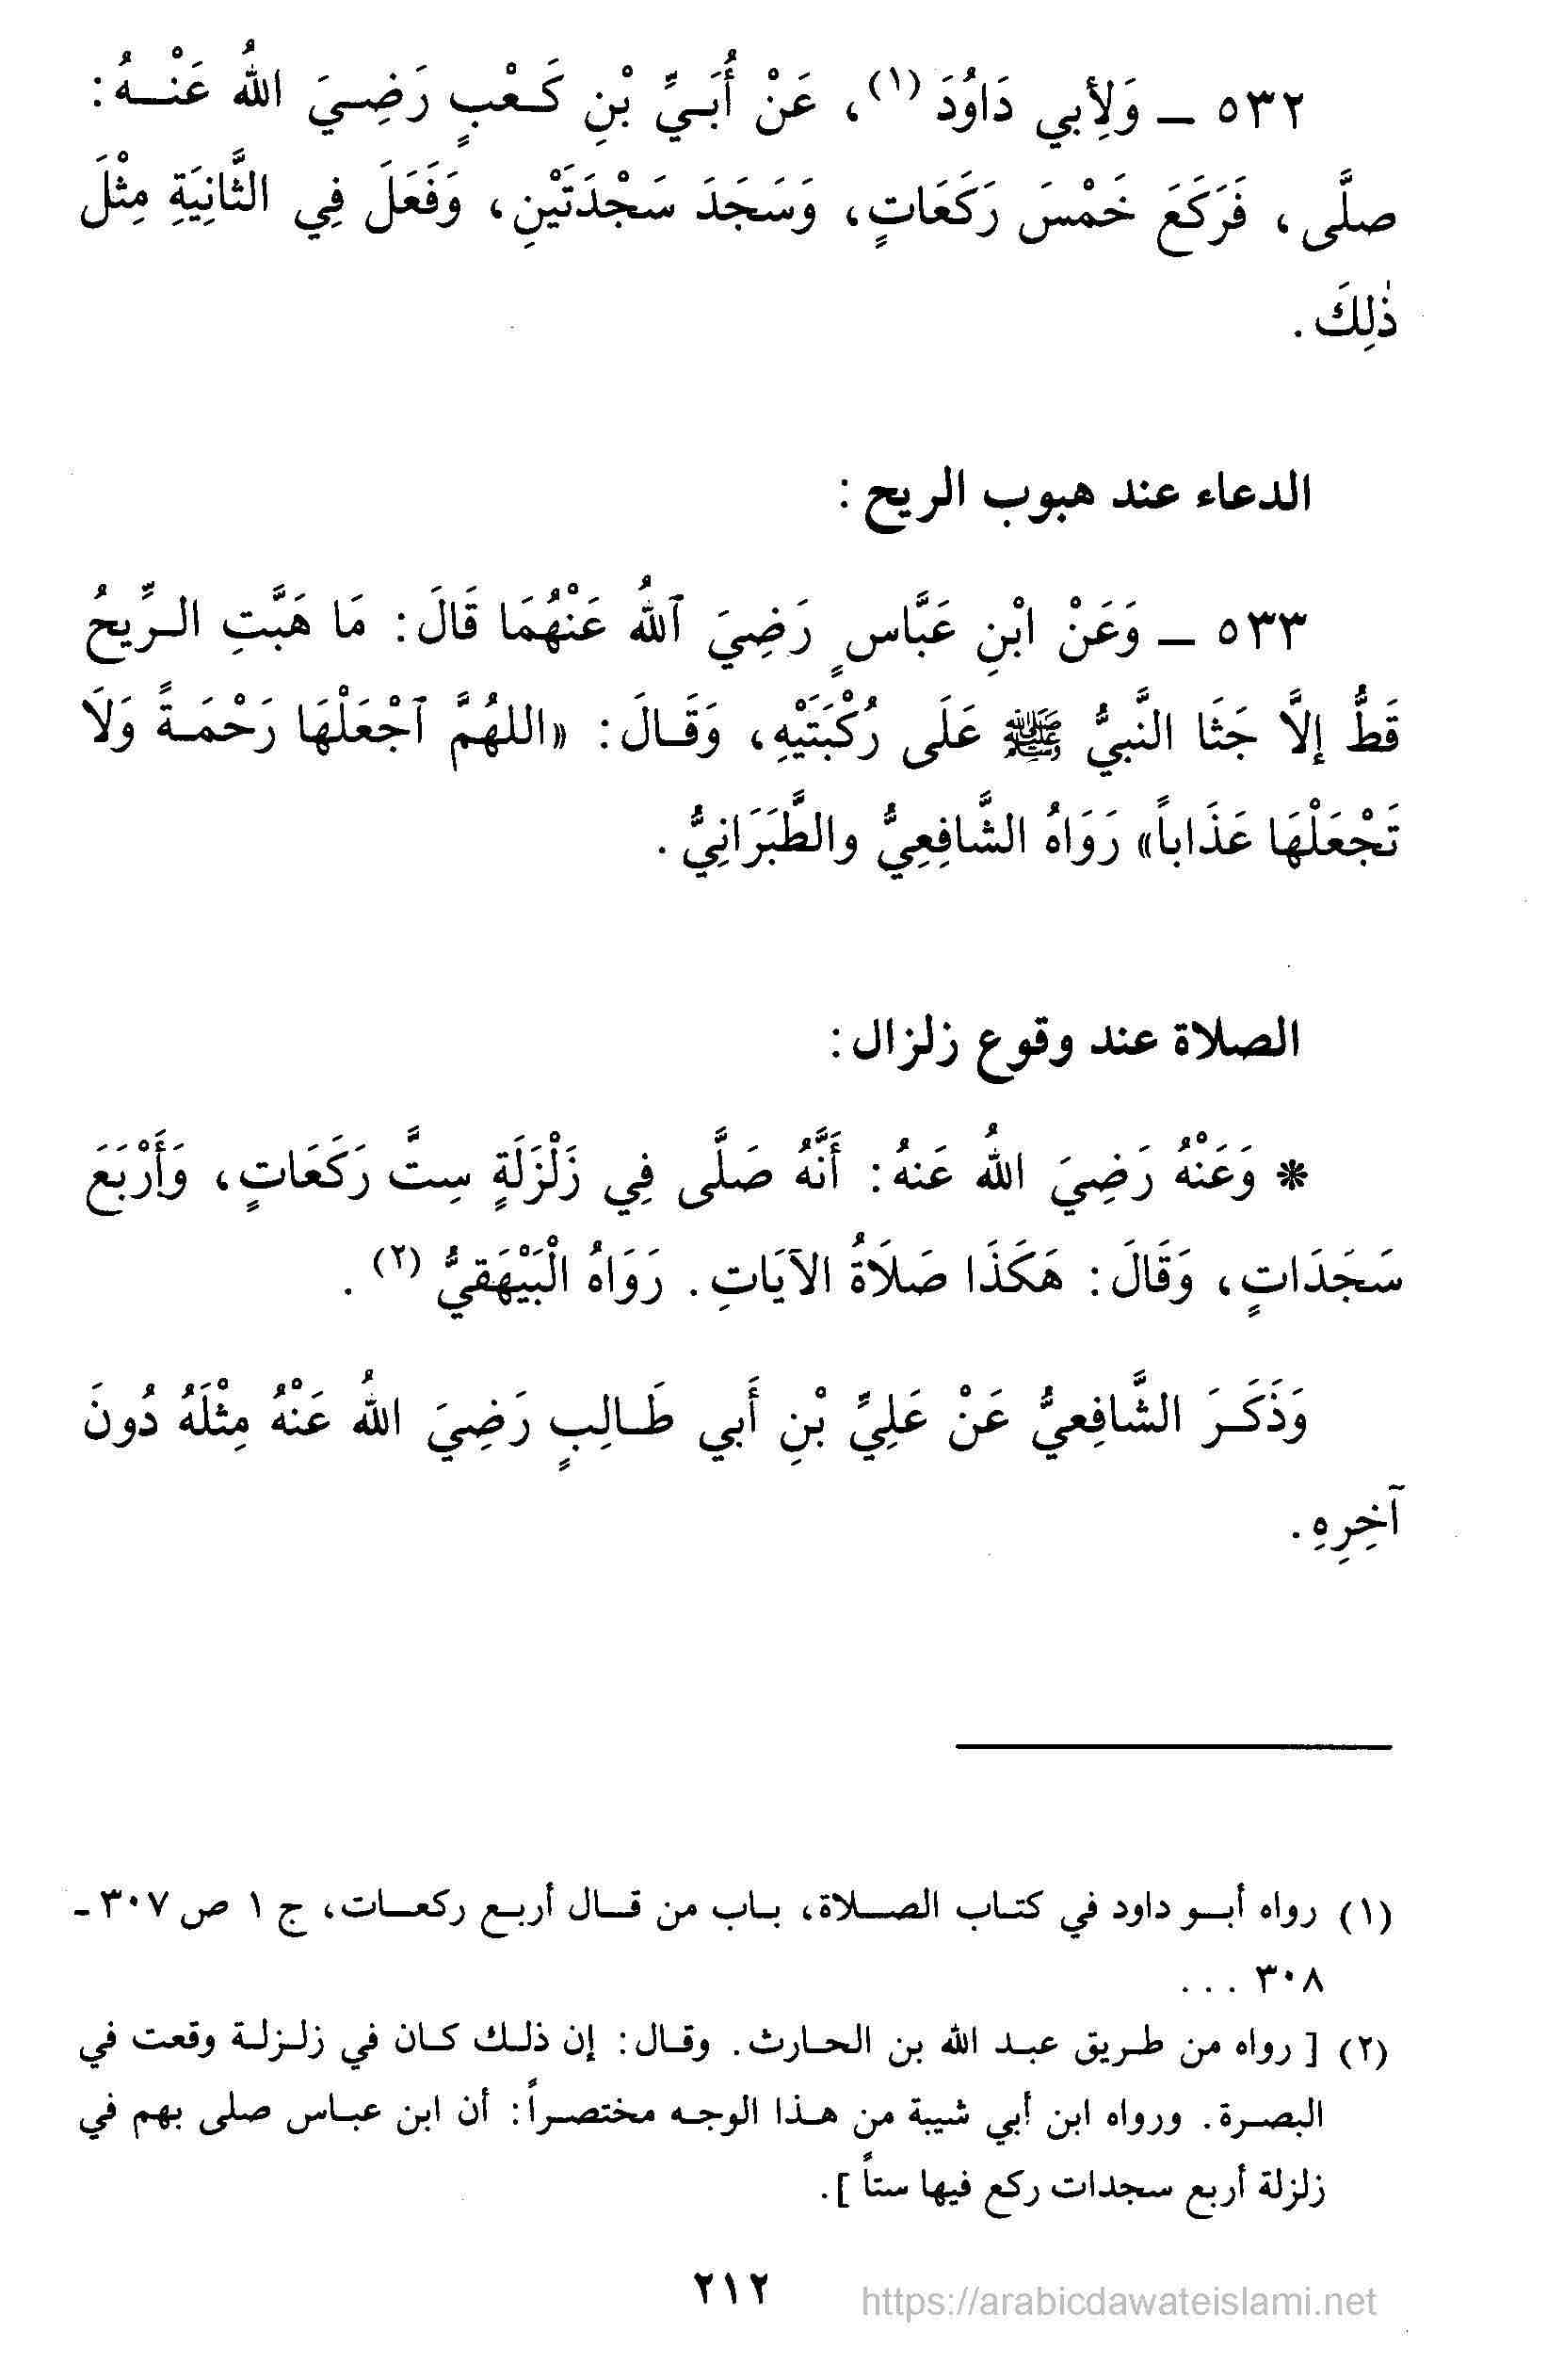 ٥٣٢ ـ وَلِأبي دَاوُدَ (١)، عَنْ أُبَـيِّ بْنِ كَـعْبٍ رَضِـيَ اللهُ عَنْـهُ:
صلَّى، فَرَكَعَ خَمْسَ رَكَعَاتٍ، وَسَجَدَ سَجْدَتَيْنِ، وَفَعَلَ فِي الثَّانِيَةِ مِثْلَ
ذٰلِكَ.
الدعاء عند هبوب الريح:
٥٣٣ ـ وَعَنْ ابْنِ عَبَّاسٍ رَضِيَ ٱللهُ عَنْهُمَا قَالَ: مَا هَبَّتِ الـرِّيحُ
قَطُّ إلَّا جَثَا النَّبيُّ ﷺ عَلَى رُكْبَتَيْهِ، وَقَـالَ: «اللهُمَّ ٱجْعَلْهَا رَحْمَـةً وَلَا
تَجْعَلْهَا عَذَاباً» رَوَاهُ الشَّافِعِيُّ والطَّبَرَانِيُّ.
الصلاة عند وقوع زلزال:
* وَعَنْهُ رَضِيَ اللهُ عَنهُ: أَنَّهُ صَلَّى فِي زَلْزَلَةٍ سِتَّ رَكَعَاتٍ، وَأَرْبَعَ
سَجَدَاتٍ، وَقَالَ: هَكَذَا صَلَاةُ الآيَاتِ. رَوَاهُ الْبَيْهَقيُّ (٢).
وَذَكَـرَ الشَّافِعيُّ عَنْ عَلِيِّ بْنِ أَبي طَـالِبٍ رَضِيَ اللهُ عَنْهُ مِثْلَهُ دُونَ
آخِرِهِ.
(١) رواه أبـو داود في كتـاب الصـلاة، بـاب من قـال أربـع ركعـات، ج ١ ص ٣٠٧ ـ
٣٠٨ ...
(٢) [ رواه من طـريق عبـد الله بن الحـارث. وقـال: إن ذلـك كـان في زلـزلـة وقعت في
البصـرة. ورواه ابن أبي شيبة من هـذا الوجـه مختصـراً: أن ابن عبـاس صلى بهم في
زلزلة أربع سجدات ركع فيها ستاً ].
٢١٢
https://arabicdawateislami.net